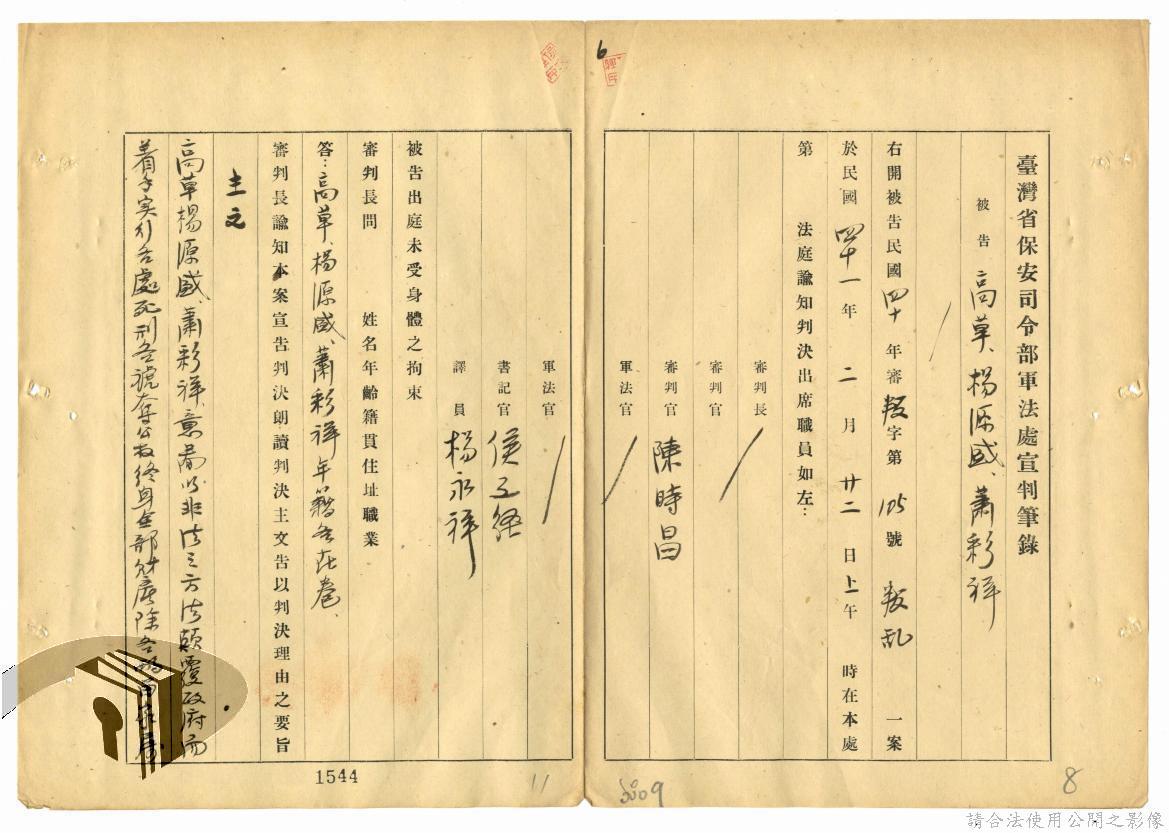 臺灣省保安司令部軍法處宣判筆錄
被告 高草、楊源盛、蕭彩祥
右開被告民國四十年審叛字第105號叛乱一案
於民國四十一年二月廿二日上午 時在本處
第 法庭諭知判決出席職員如左：
審判長
審判官
審判官 陳時昌
軍法官
軍法官
書記官
譯員 楊永祥
被告出庭未受身體之拘束
審判長問 姓名年齡籍貫住址職業
答：高草、楊源盛、蕭彩祥年籍各在卷、
審判長諭知本案宣告判決朗讀判決主文告以判決理由之要旨
主文
高草楊源盛、蕭彩祥、意啚以非法之方法顛覆政府而
着手实行各處死刑各褫奪公权終身全部財產除各酌留家屬
6
1544
11
8
請合法使用公開之影像